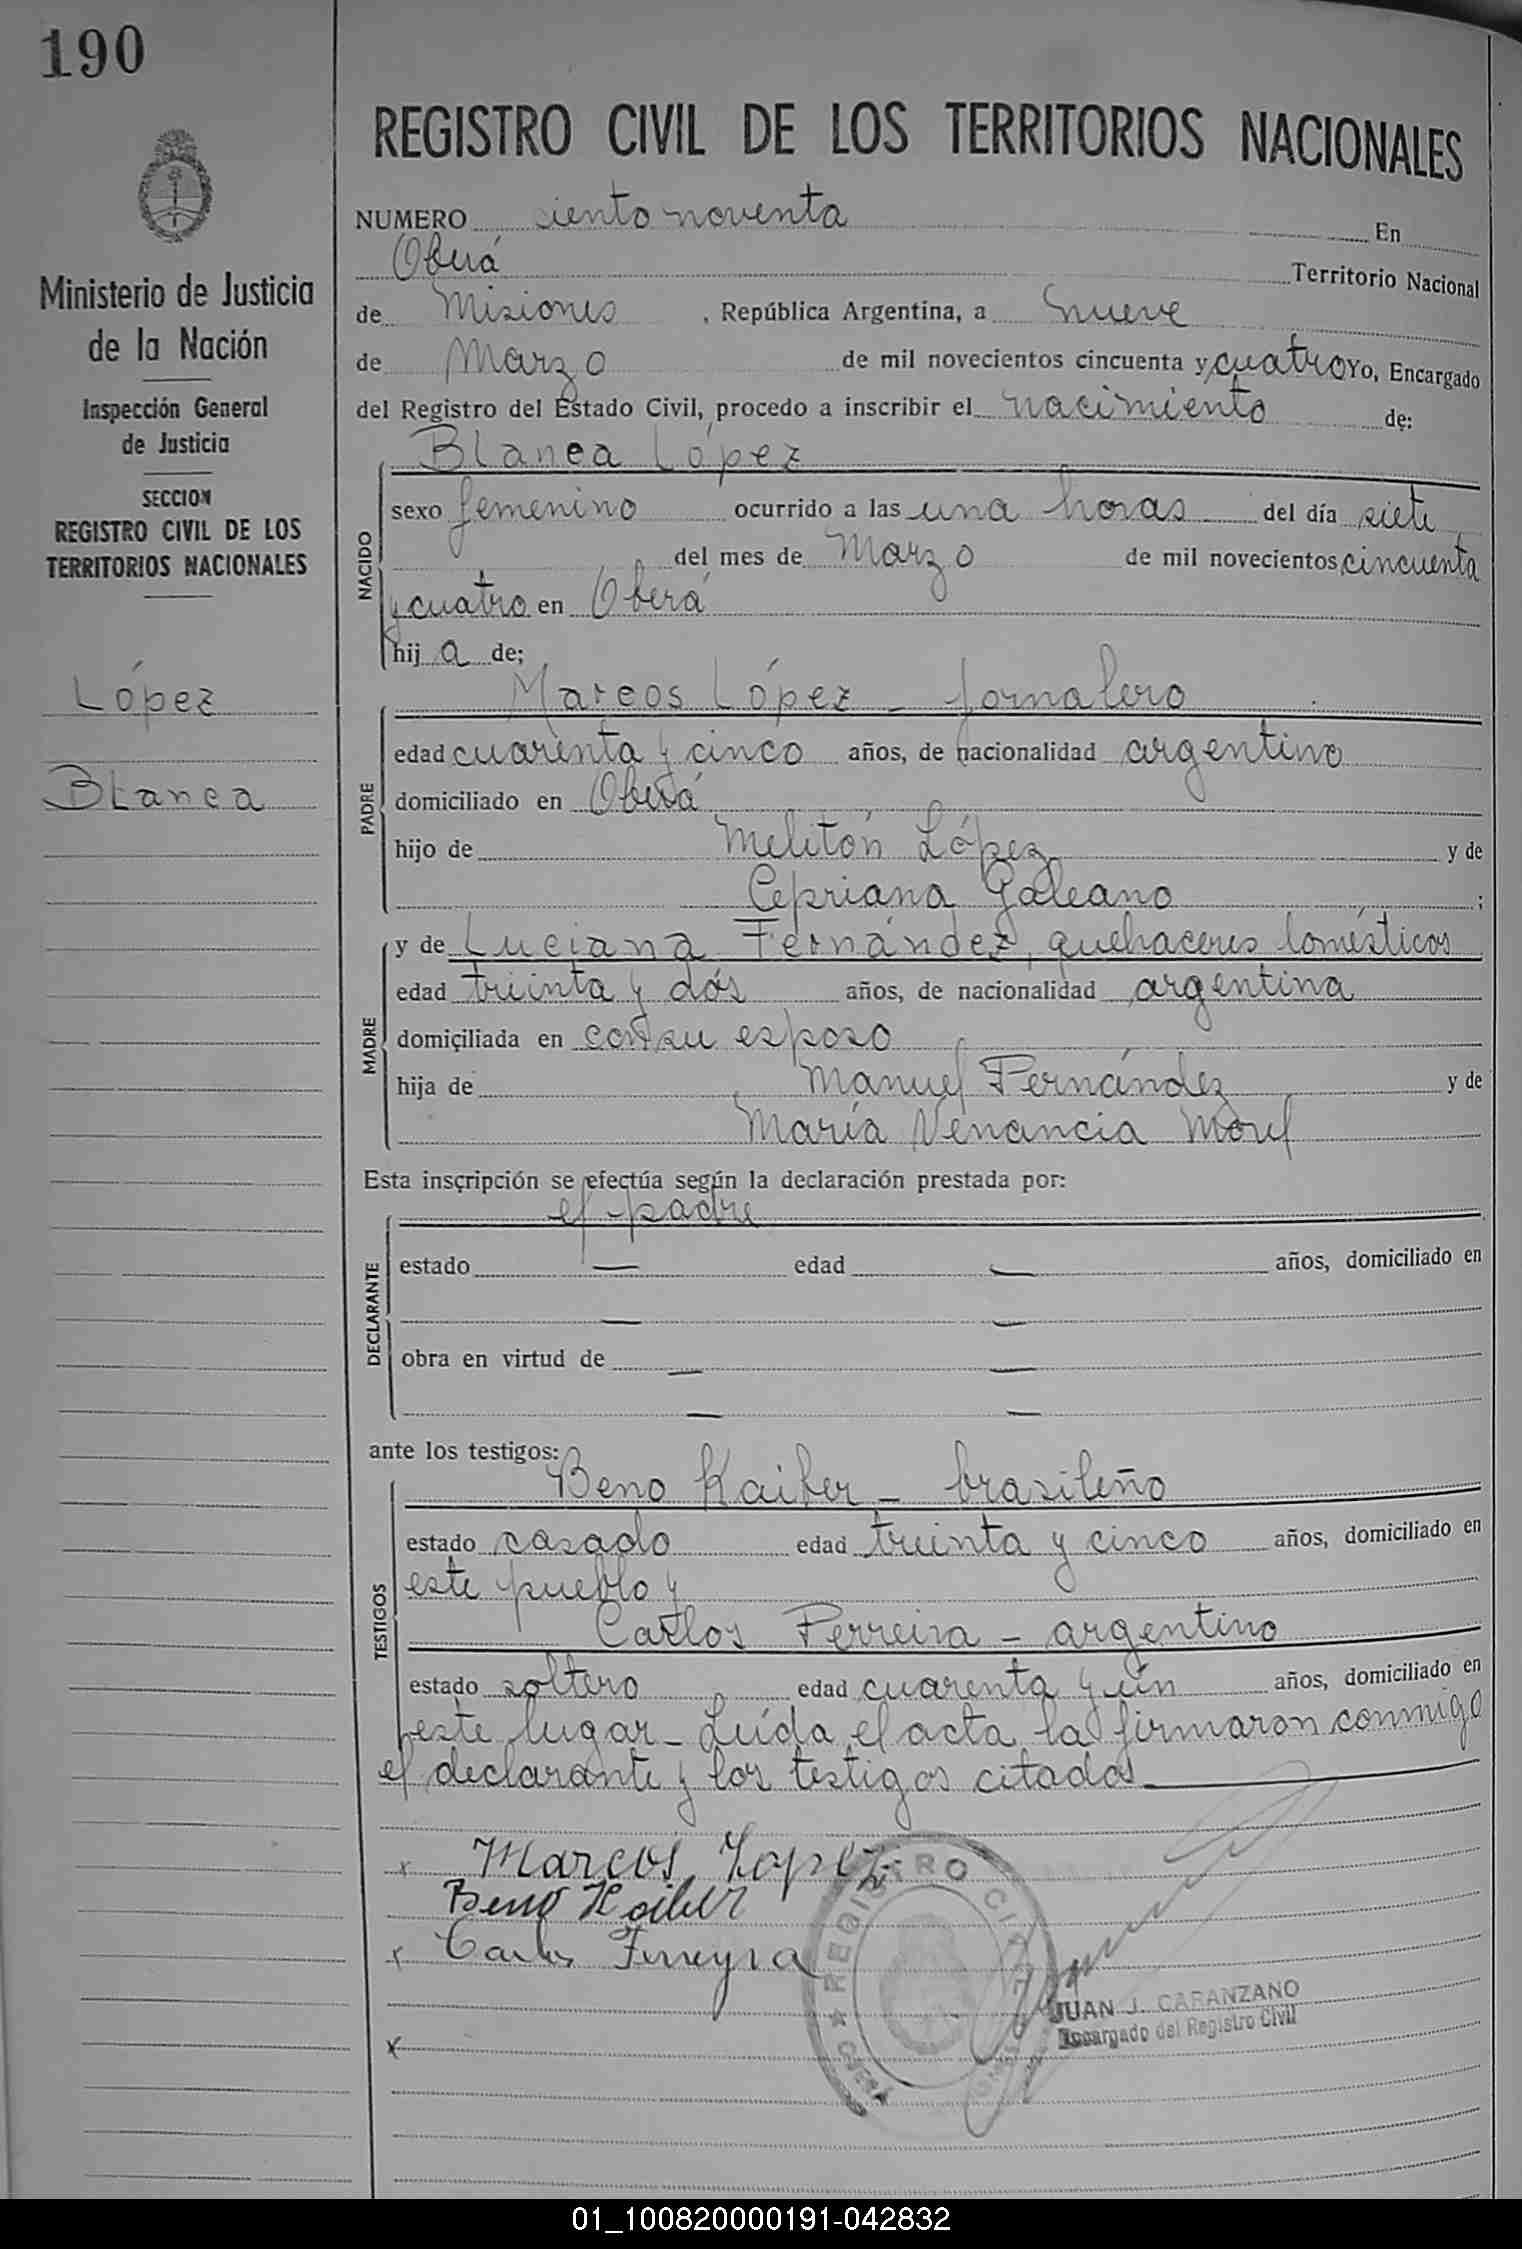 190
REGISTRO CIVIL DE LOS TERRITORIOS NACIONALES
Ministerio de Justicia
de la Nación
Inspección General
de Justicia
SECCION
REGISTRO CIVIL DE LOS
TERRITORIOS NACIONALES
López
Blanca
NUMERO ciento noventa En
Oberá Territorio Nacional
de Misiones, República Argentina, a nueve
de Marzo de mil novecientos cincuenta y cuatro Yo, Encargado
del Registro del Estado Civil, procedo a inscribir el nacimiento de:
Blanca López
NACIDO
sexo femenino ocurrido a las una horas del día siete
del mes de Marzo de mil novecientos cincuenta
y cuatro en Oberá
hija de;
Marcos López - jornalero
PADRE
edad cuarenta y cinco años, de nacionalidad argentino
domiciliado en Oberá
hijo de Melitón López y de
Cepriana Galeano;
MADRE
y de Luciana Fernández, quehaceres domésticos
edad treinta y dós años, de nacionalidad argentina
domiciliada en con su esposo
hija de Manuel Fernández y de
María Venancia Morel
Esta inscripción se efectúa según la declaración prestada por:
el padre
DECLARANTE
estado — edad — años, domiciliado en
— —
obra en virtud de — —
— —
ante los testigos:
Beno Kaiber - brasileño
TESTIGOS
estado casado edad treinta y cinco años, domiciliado en
este pueblo y
Carlos Ferreira - argentino
estado soltero edad cuarenta y ún años, domiciliado en
este lugar - Leída el acta la firmaron conmigo
el declarante y los testigos citados
x Marcos Lopez
Beno Kaiber
x Carlos Ferreyra
x
REGISTRO CIVIL
OBERÁ
MISIONES
JUAN J. CARANZANO
Encargado del Registro Civil
01_100820000191-042832